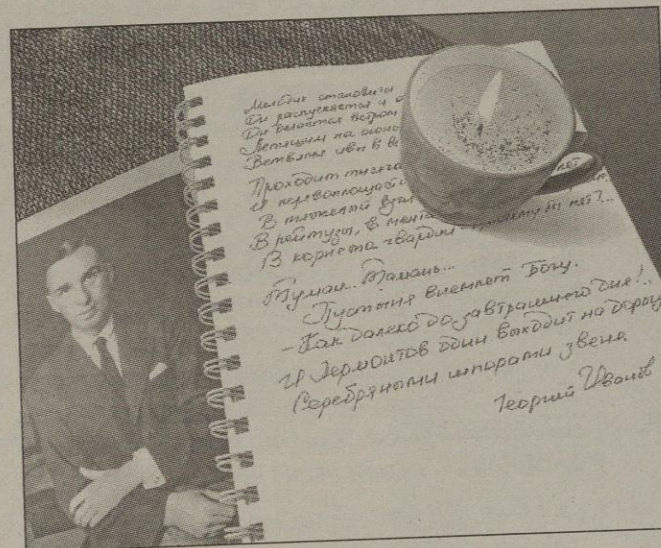 Мелодия становится
Он распускается и о
Он делается ветром
Летящим на огонь
Ветвями ивы в в
Проходит тысяча
И перевоплощается
В тяжелый взгляд
В рейтузы, в ментик
В корнета гвардии - почему бы нет?...
Туман... Тамань...
Пустыня внемлет Богу.
- Как далеко до завтрашнего дня!..
И Лермонтов один выходит на дорогу,
Серебряными шпорами звеня.
Георгий Иванов